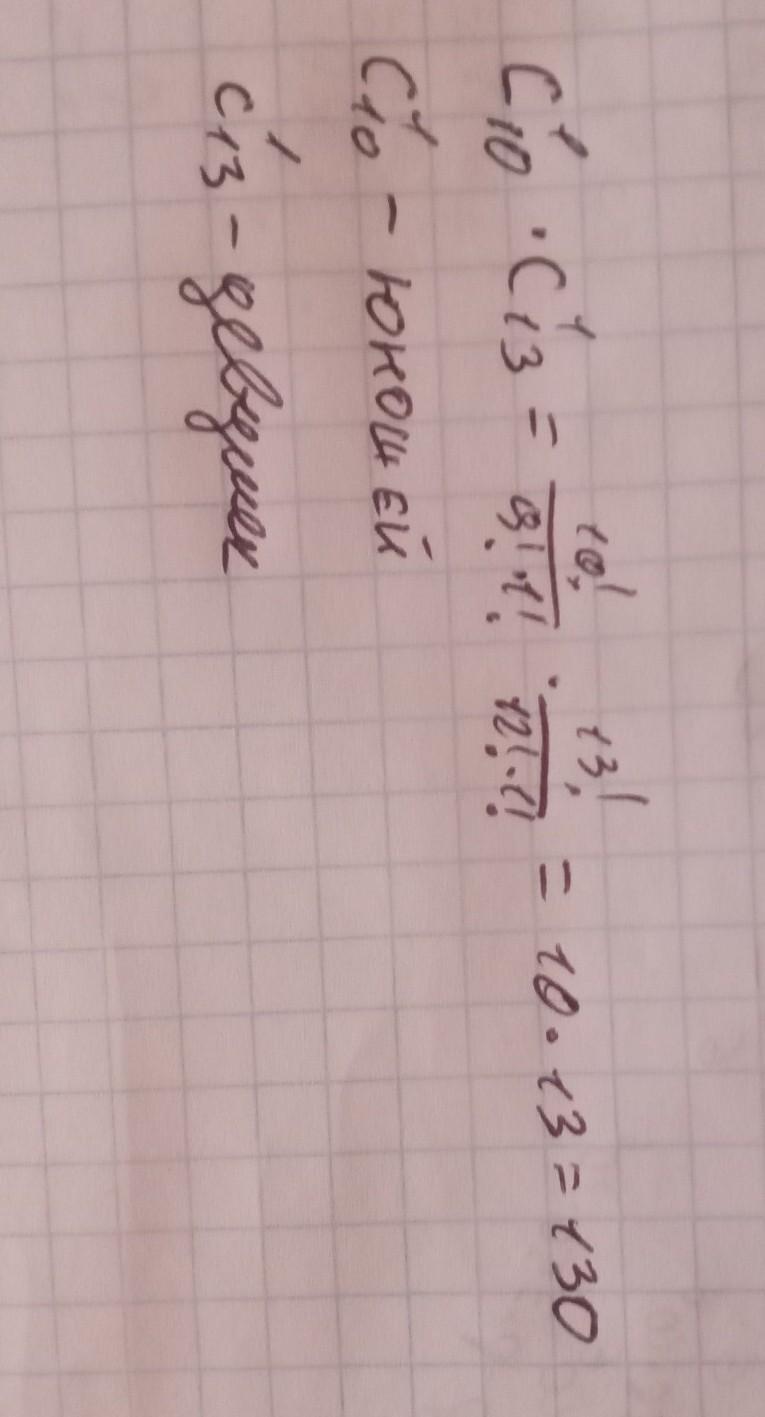 C¹₁₀ · C¹₁₃ = 10!/(9! · 1!) · 13!/(12! · 1!) = 10 · 13 = 130
C¹₁₀ - юношей
C¹₁₃ - девушек